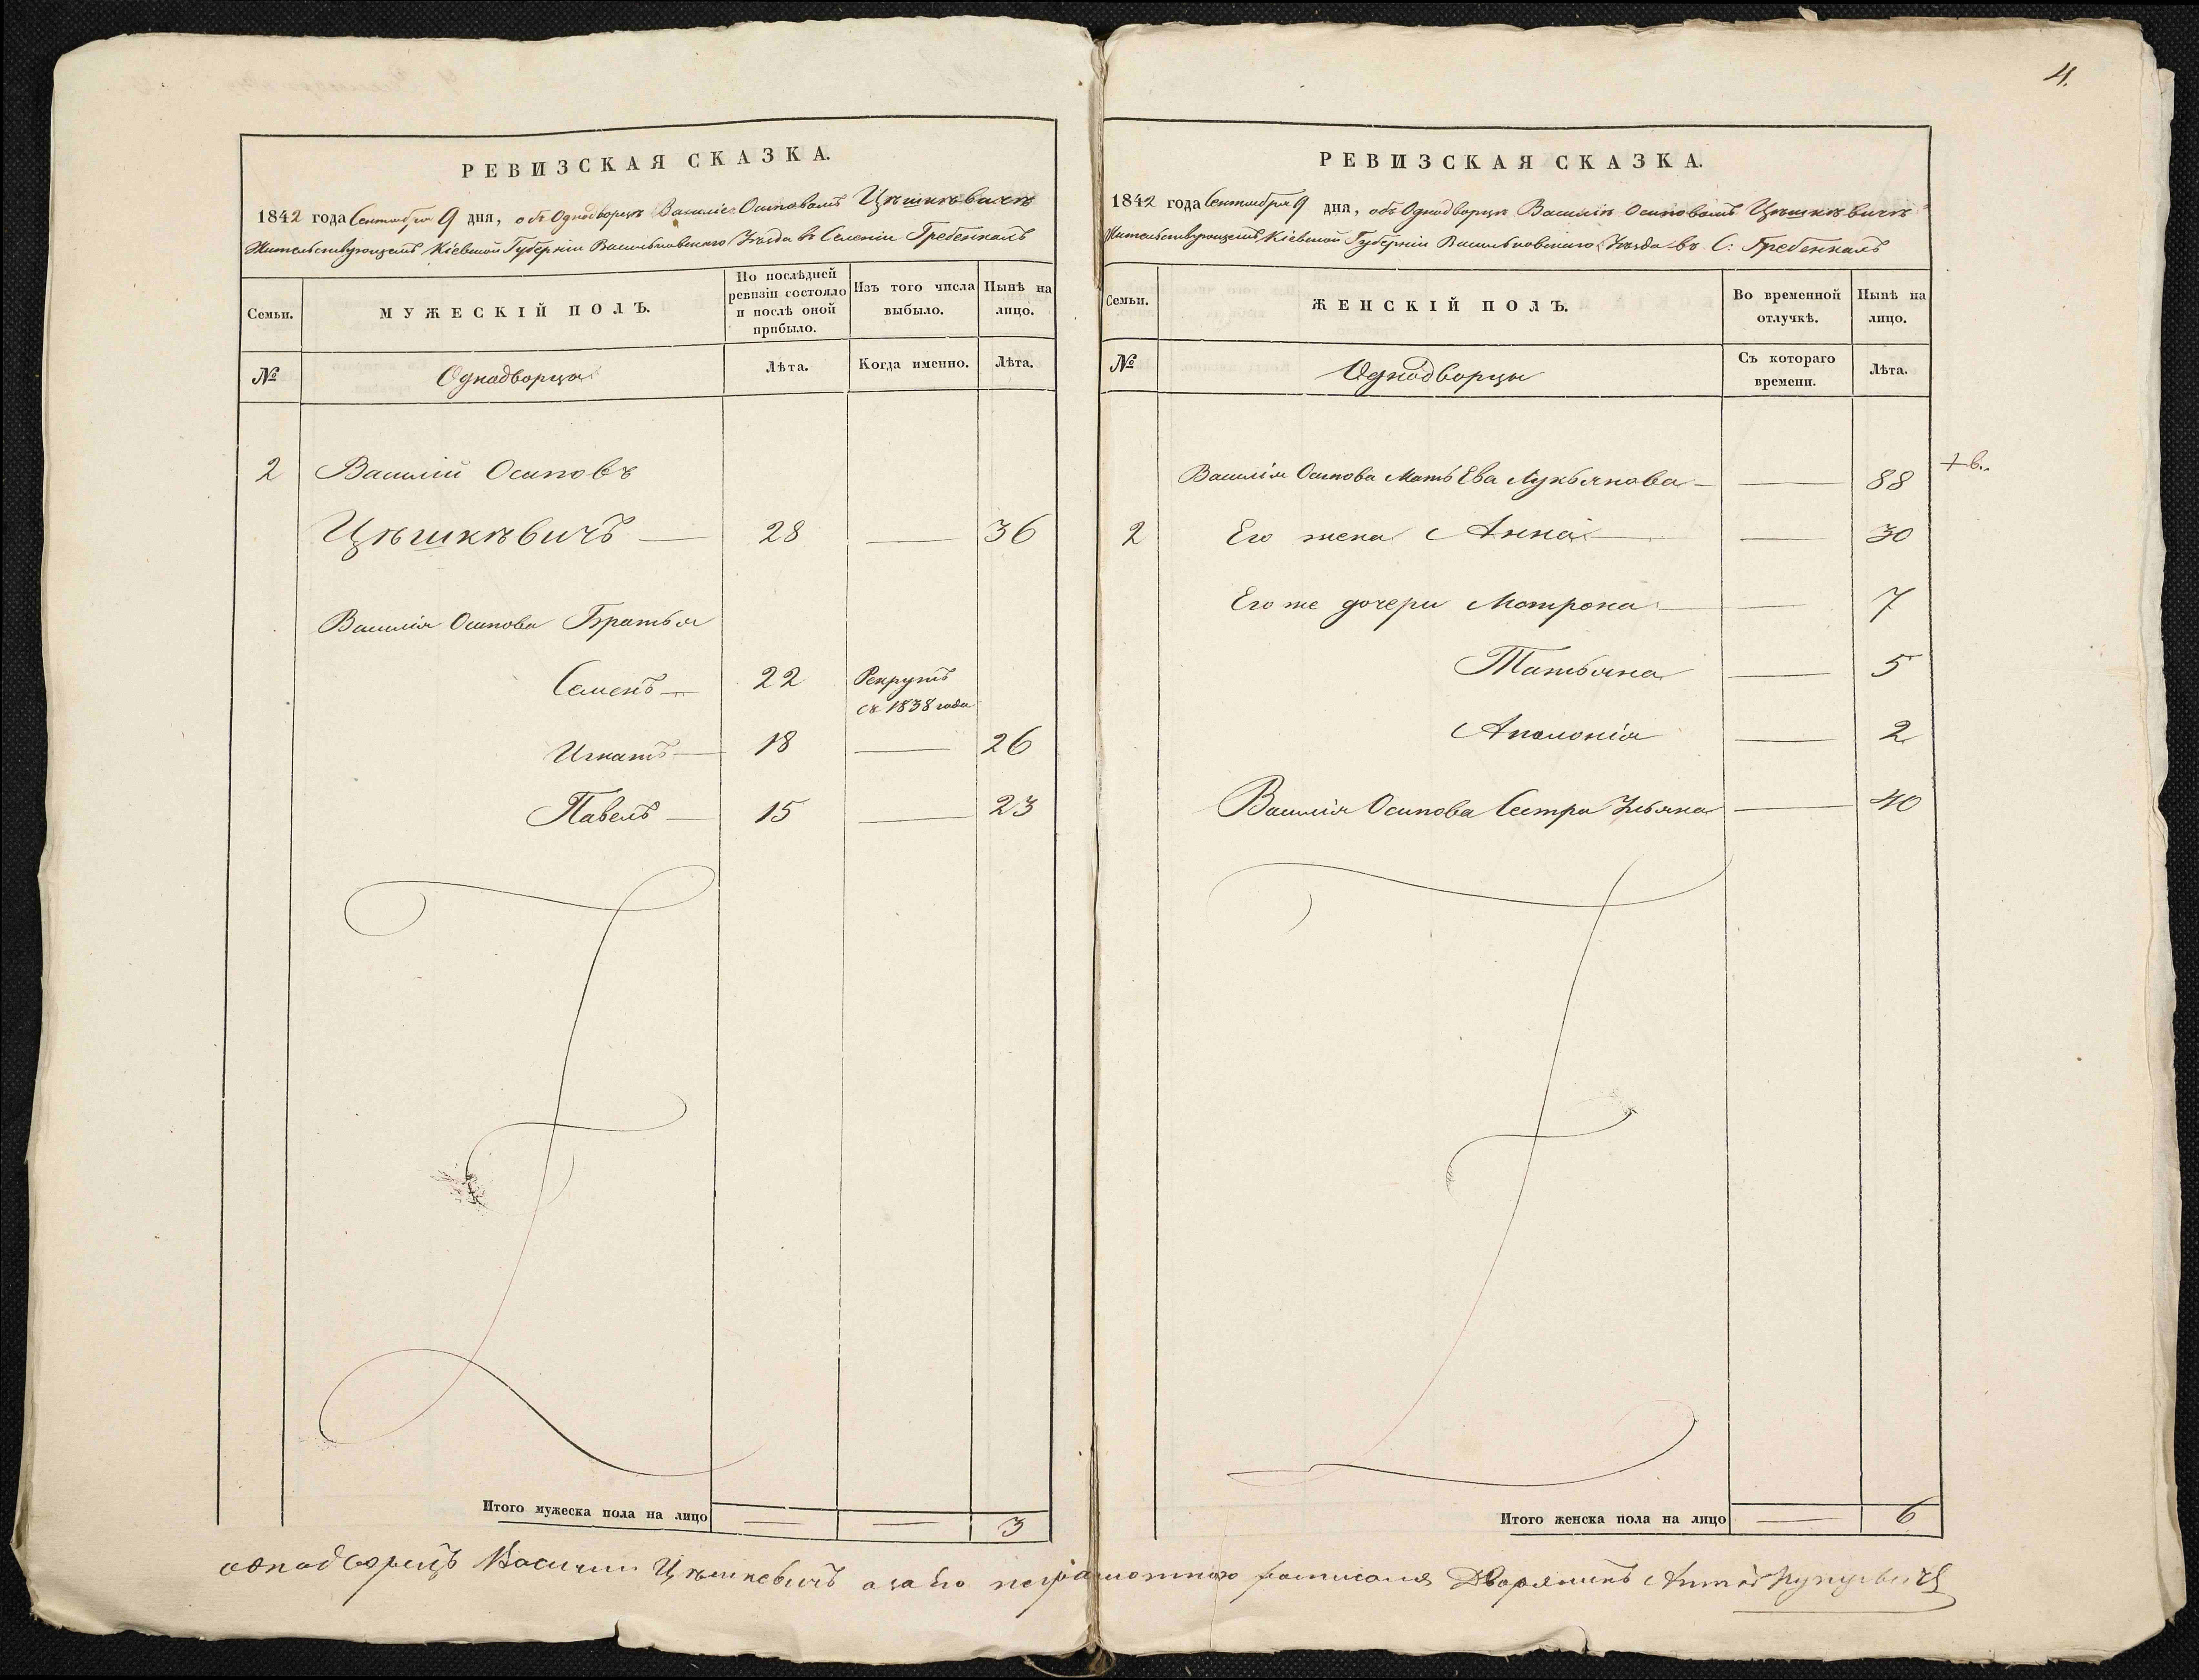 РЕВИЗСКАЯ СКАЗКА.
1842 года Сентября 9 дня, объ Однодворцѣ Василіе Осиповомъ Цѣшкѣвичѣ
Жительствующемъ Кіевской Губерніи Васильковскаго Уѣзда въ Селеніи Гребенкахъ
Семьи.
МУЖЕСКІЙ ПОЛЪ.
По послѣдней ревизіи состояло и послѣ оной прибыло.
Изъ того числа выбыло.
Нынѣ на лицо.
№
Однодворцы
Лѣта.
Когда именно.
Лѣта.
2 Василій Осиповъ
Цѣшкѣвичъ — 28 — 36
Василія Осипова Братья
Семенъ — 22 Рекрутъ
съ 1838 года
Игнатъ — 18 — 26
Павелъ — 15 — 23
Итого мужеска пола на лицо — — 3
4.
РЕВИЗСКАЯ СКАЗКА.
1842 года Сентября 9 дня, объ Однодворцѣ Василіѣ Осиповомъ Цѣшкѣвичѣ
Жительствующемъ Кіевской Губерніи Васильковскаго Уѣзда въ С: Гребенкахъ
Семьи.
ЖЕНСКІЙ ПОЛЪ.
Во временной отлучкѣ.
Нынѣ на лицо.
№
Однодворцы
Съ котораго времени.
Лѣта.
Василія Осипова Мать Ева Лукьянова — — 88
2 Его жена Анна — — 30
Его же дочери Матрона — — 7
Татьяна — 5
Аполонія — 2
Василія Осипова Сестра Ульяна — 40
Итого женска пола на лицо — 6
однодворецъ Василий Цѣшкевичъ а за его неграмотного росписался Дворянинъ Антон